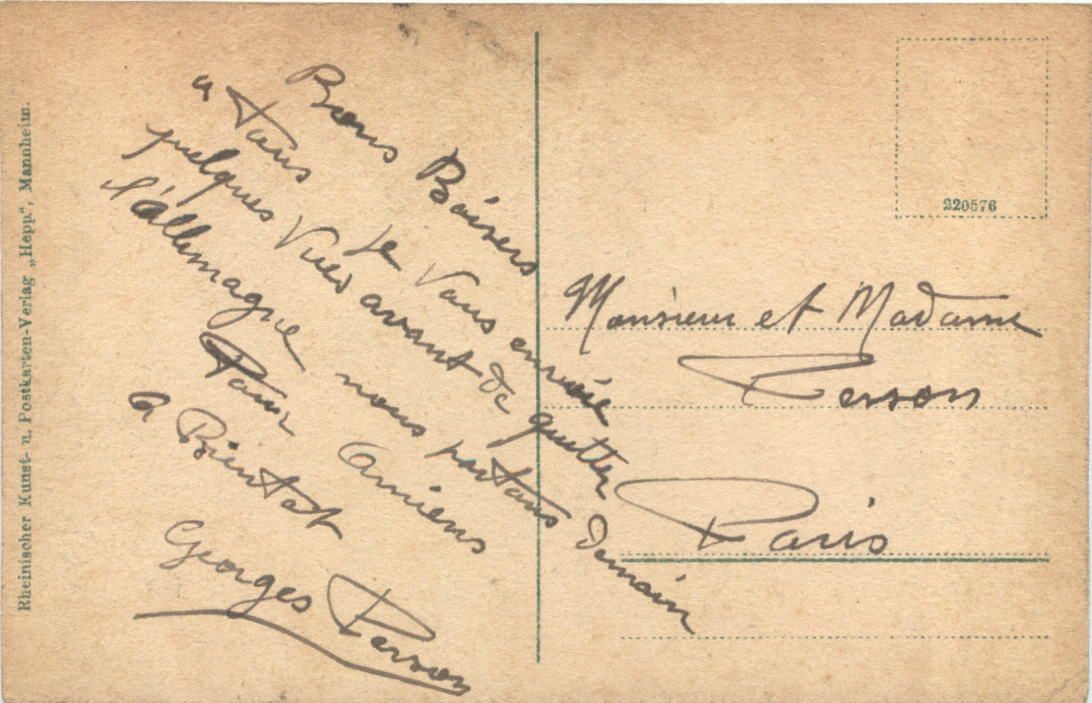 Bons Baisers
a tous je vous envoie
quelques vues avant de quitter
l'allemagne nous partons demain
Pour Amiens
a Bientot
Georges Person
Monsieur et Madame
Person
Paris
220576
Rheinischer Kunst- u. Postkarten-Verlag „Hepp", Mannheim.